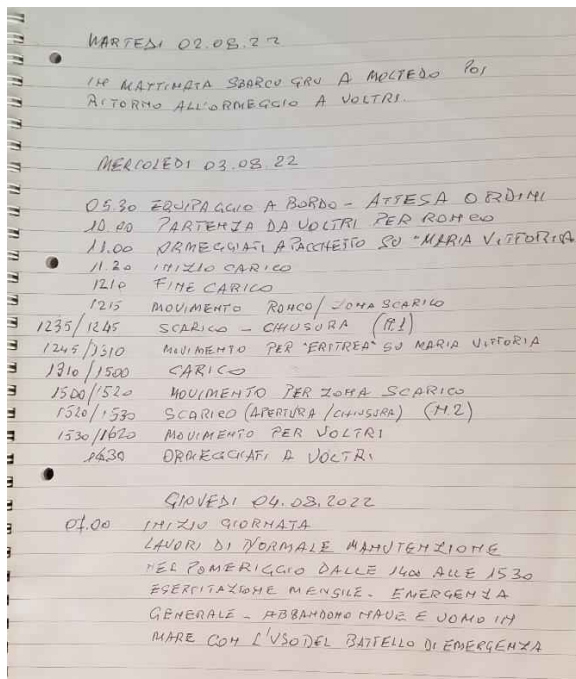 MARTEDI 02.08.22
IN MATTINATA SBARCO GRU A MOLTEDO POI
RITORNO ALL'ORMEGGIO A VOLTRI.
MERCOLEDI 03.08.22
05.30 EQUIPAGGIO A BORDO - ATTESA ORDINI
10.00 PARTENZA DA VOLTRI PER RONCO
11.00 ORMEGGIATI A PACCHETTO SU "MARIA VITTORIA
11.20 INIZIO CARICO
1210 FINE CARICO
1215 MOVIMENTO RONCO/ZONA SCARICO
1235/1245 SCARICO - CHIUSURA (N.1)
1245/1310 MOVIMENTO PER "ERITREA" SU MARIA VITTORIA
1310/1500 CARICO
1500/1520 MOVIMENTO PER ZONA SCARICO
1520/1530 SCARICO (APERTURA/CHIUSURA) (N.2)
1530/1620 MOVIMENTO PER VOLTRI
1630 ORMEGGIATI A VOLTRI
GIOVEDI 04.08.2022
07.00 INIZIO GIORNATA
LAVORI DI NORMALE MANUTENZIONE
NEL POMERIGGIO DALLE 1400 ALLE 1530
ESERCITAZIONE MENSILE - EMERGENZA
GENERALE - ABBANDONO NAVE E UOMO IN
MARE CON L'USO DEL BATTELLO DI EMERGENZA